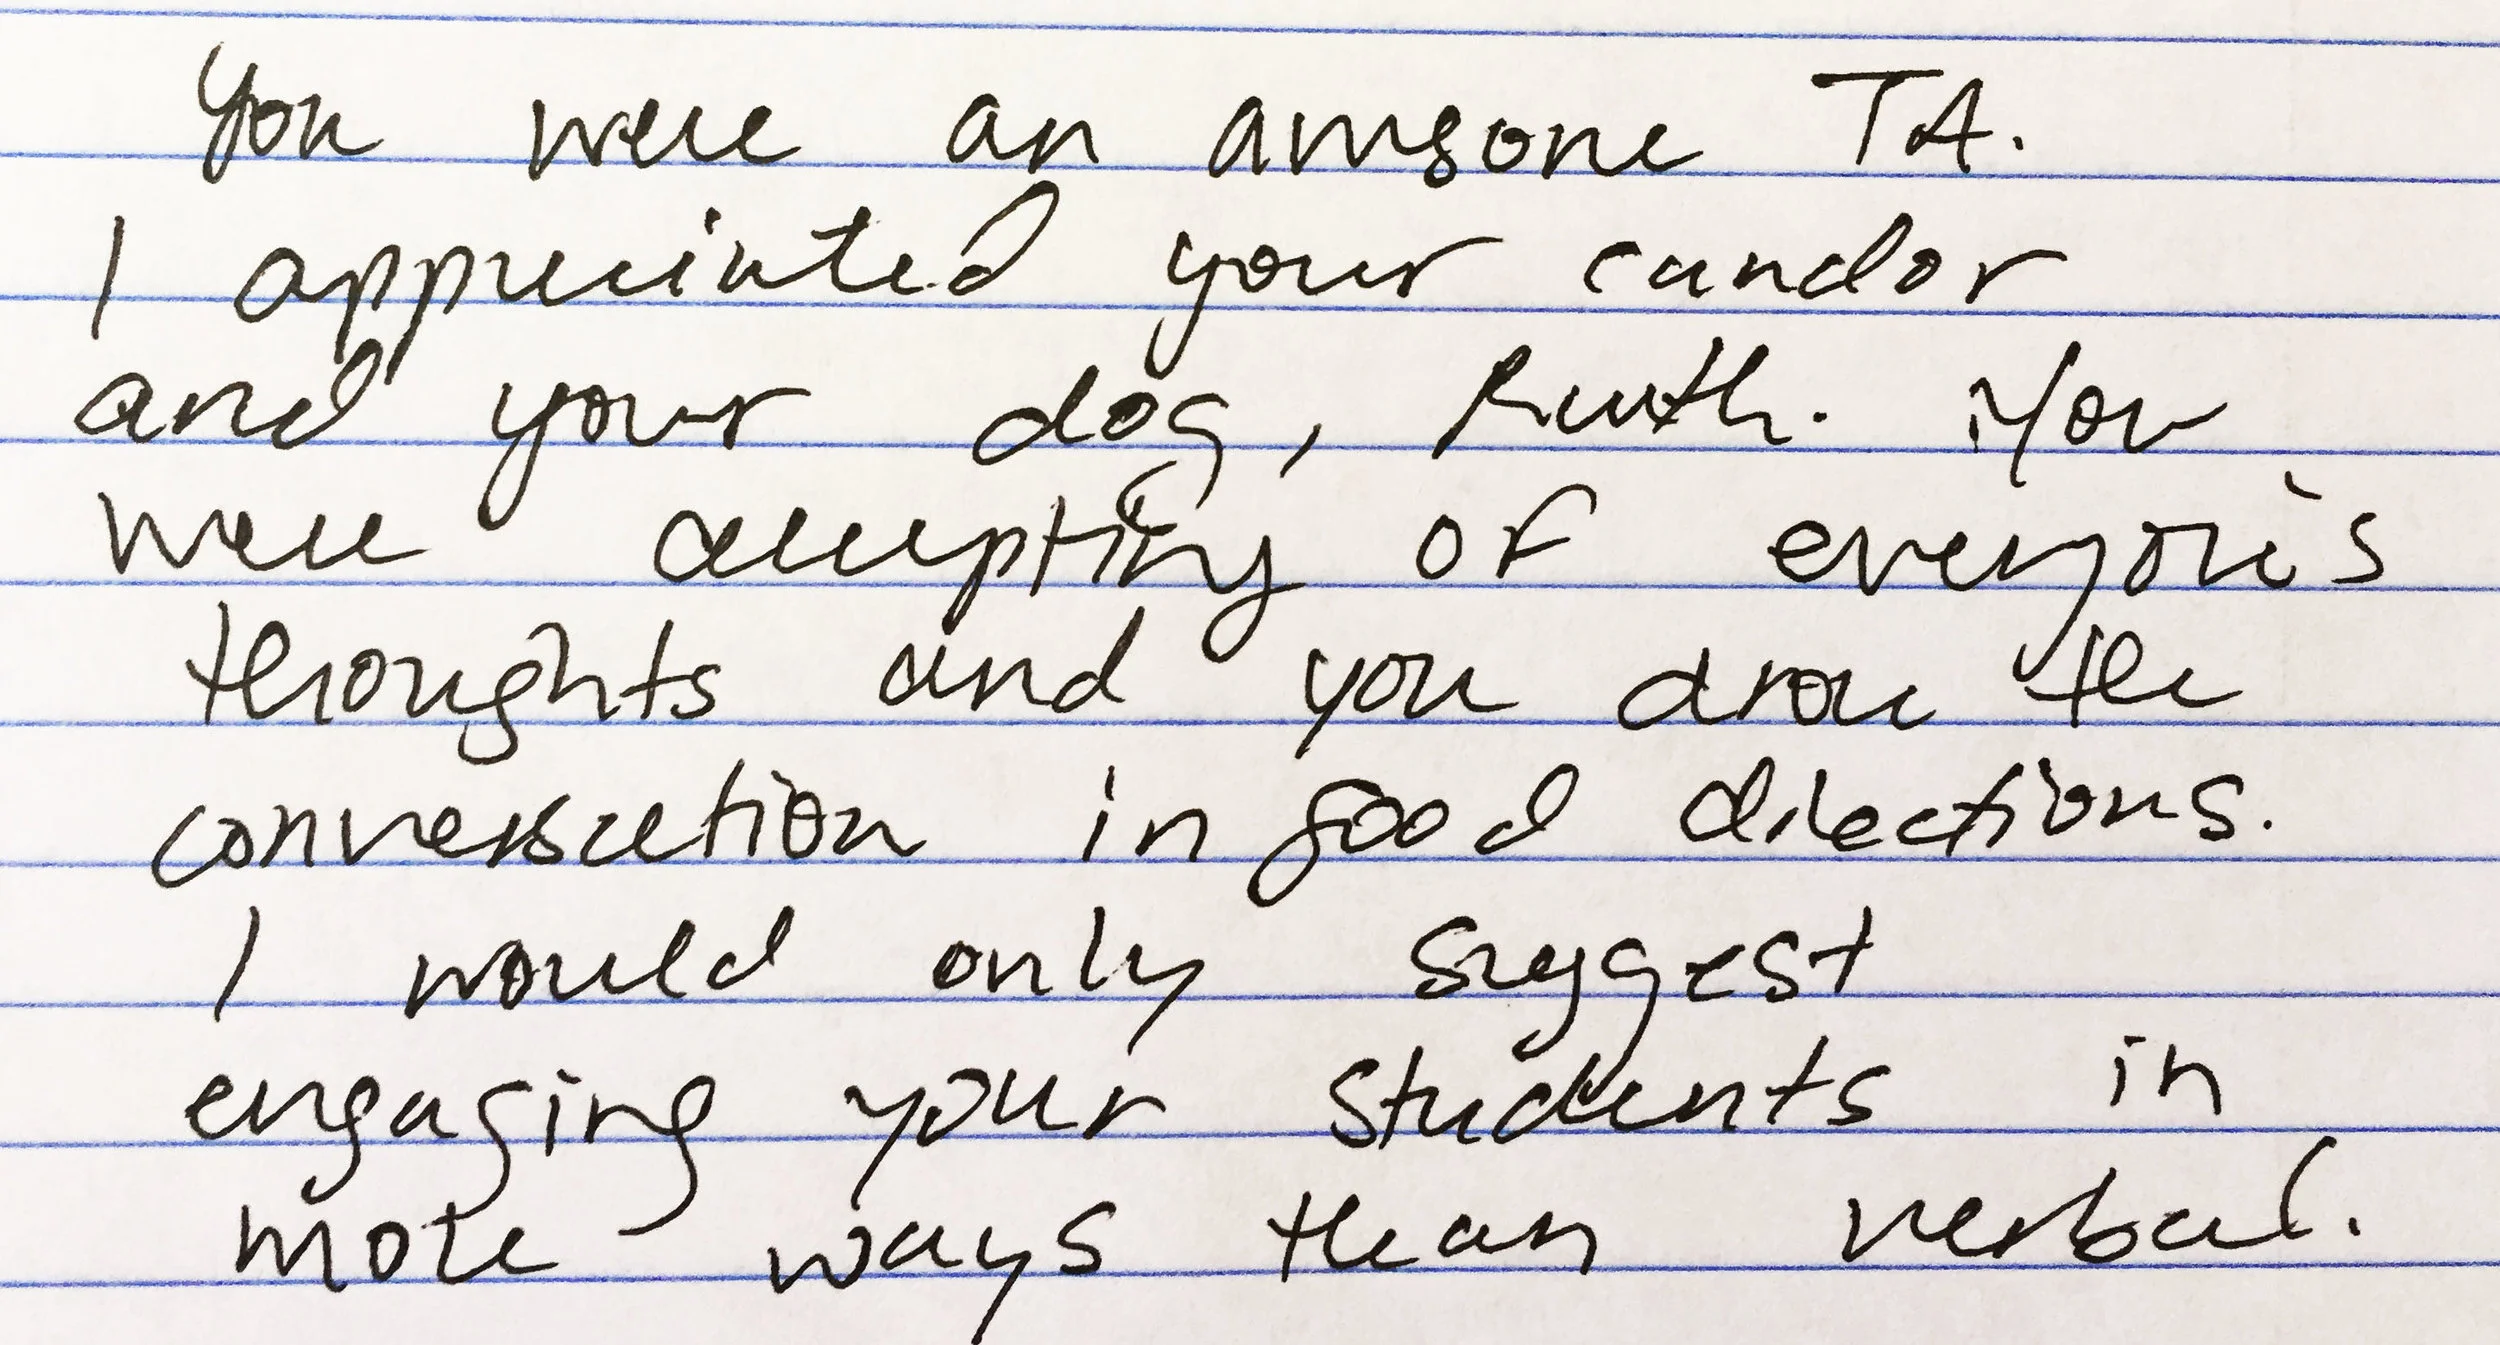 You were an awesome TA.
I appreciated your candor
and your dog, Ruth. You
were accepting of everyone's
thoughts and you drove the
conversation in good directions.
I would only suggest
engaging your students in
more ways than verbal.